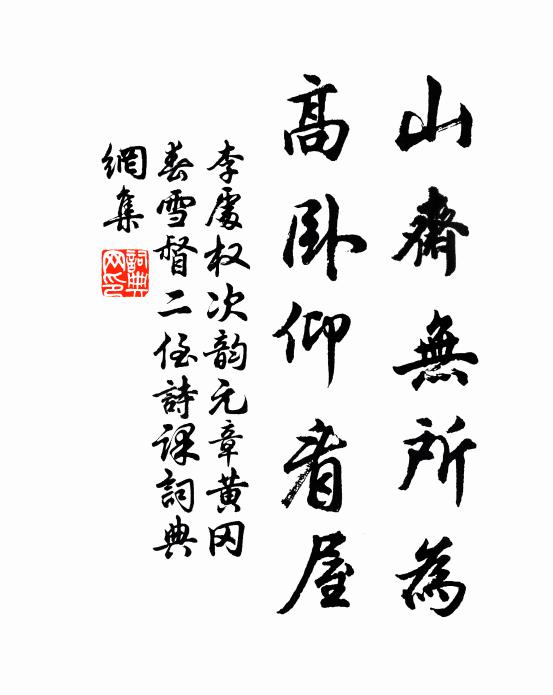 山齋無所為
高卧仰看屋
李處权次韵元章黄冈
春雪督二侄詩课詞典
網集
詞典網印